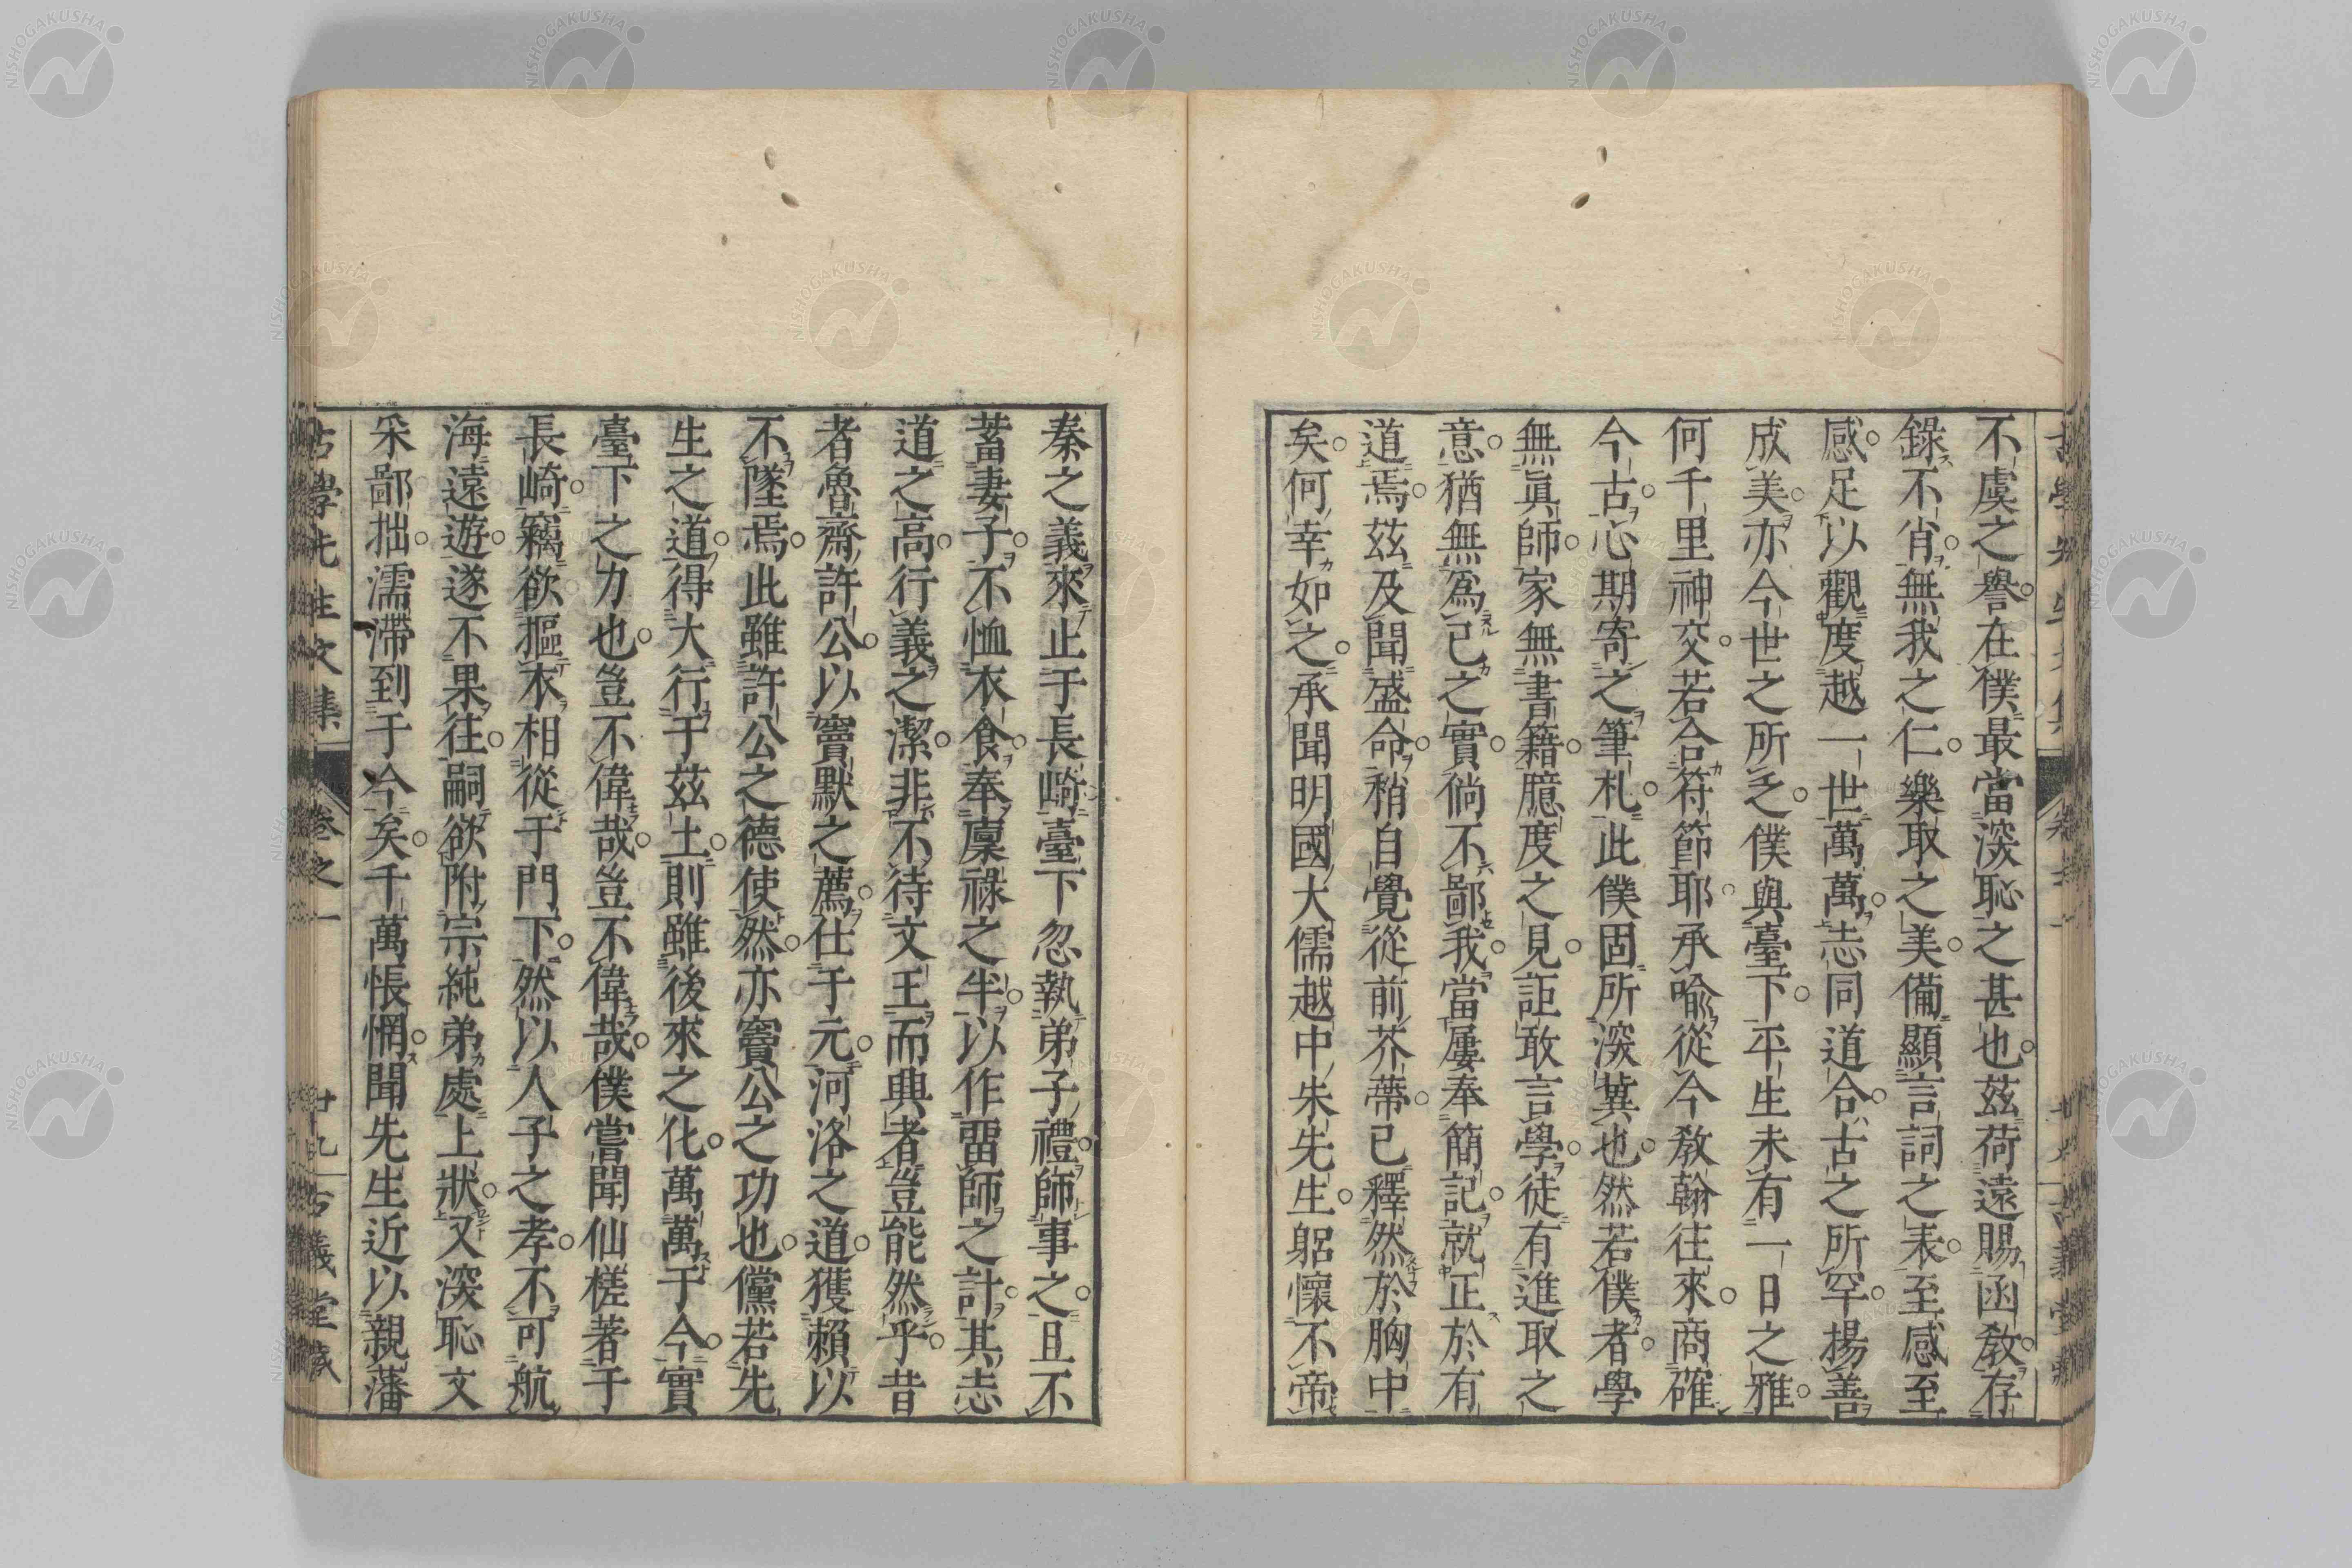 不虞之譽。在僕最當深恥之甚也。茲荷遠賜函教。存
錄不肖。無我之仁。樂取之美。備顯言詞之表。至感至
感。足以觀度越一世萬萬。志同道合。古之所罕。揚善
成美。亦今世之所乏。僕與臺下。平生未有一日之雅。
何千里神交。若合符節耶。承喩從今教翰往來。商確
今古。心期寄之筆札。此僕固所深冀也。然若僕者。學
無眞師。家無書籍。臆度之見。詎敢言學。徒有進取之
意。猶無爲己之實。倘不鄙我。當屢奉簡記。就正於有
道焉。茲及聞盛命。稍自覺從前芥蔕。已釋然於胸中
矣。何幸如之。承聞明國大儒越中朱先生。躬懷不帝
秦之義。來止于長崎。臺下忽執弟子禮。師事之。且不
蓄妻子。不恤衣食。奉廩祿之半。以作留師之計。其志
道之高。行義之潔。非不待文王而興者。豈能然乎。昔
者魯齋許公。以竇默之薦。仕于元。河洛之道。獲賴以
不墜焉。此雖許公之德使然。亦竇公之功也。儻若先
生之道。得大行于茲土。則雖後來之化。萬萬于今。實
臺下之力也。豈不偉哉。豈不偉哉。僕嘗聞仙槎著于
長崎。竊欲摳衣相從于門下。然以人子之孝。不可航
海遠遊。遂不果往。嗣欲附宗純弟處上狀。又深恥文
采鄙拙。濡滯到于今矣。千萬悵惘。聞先生近以親藩
古學先生文集 卷之一 廿九 古義堂藏